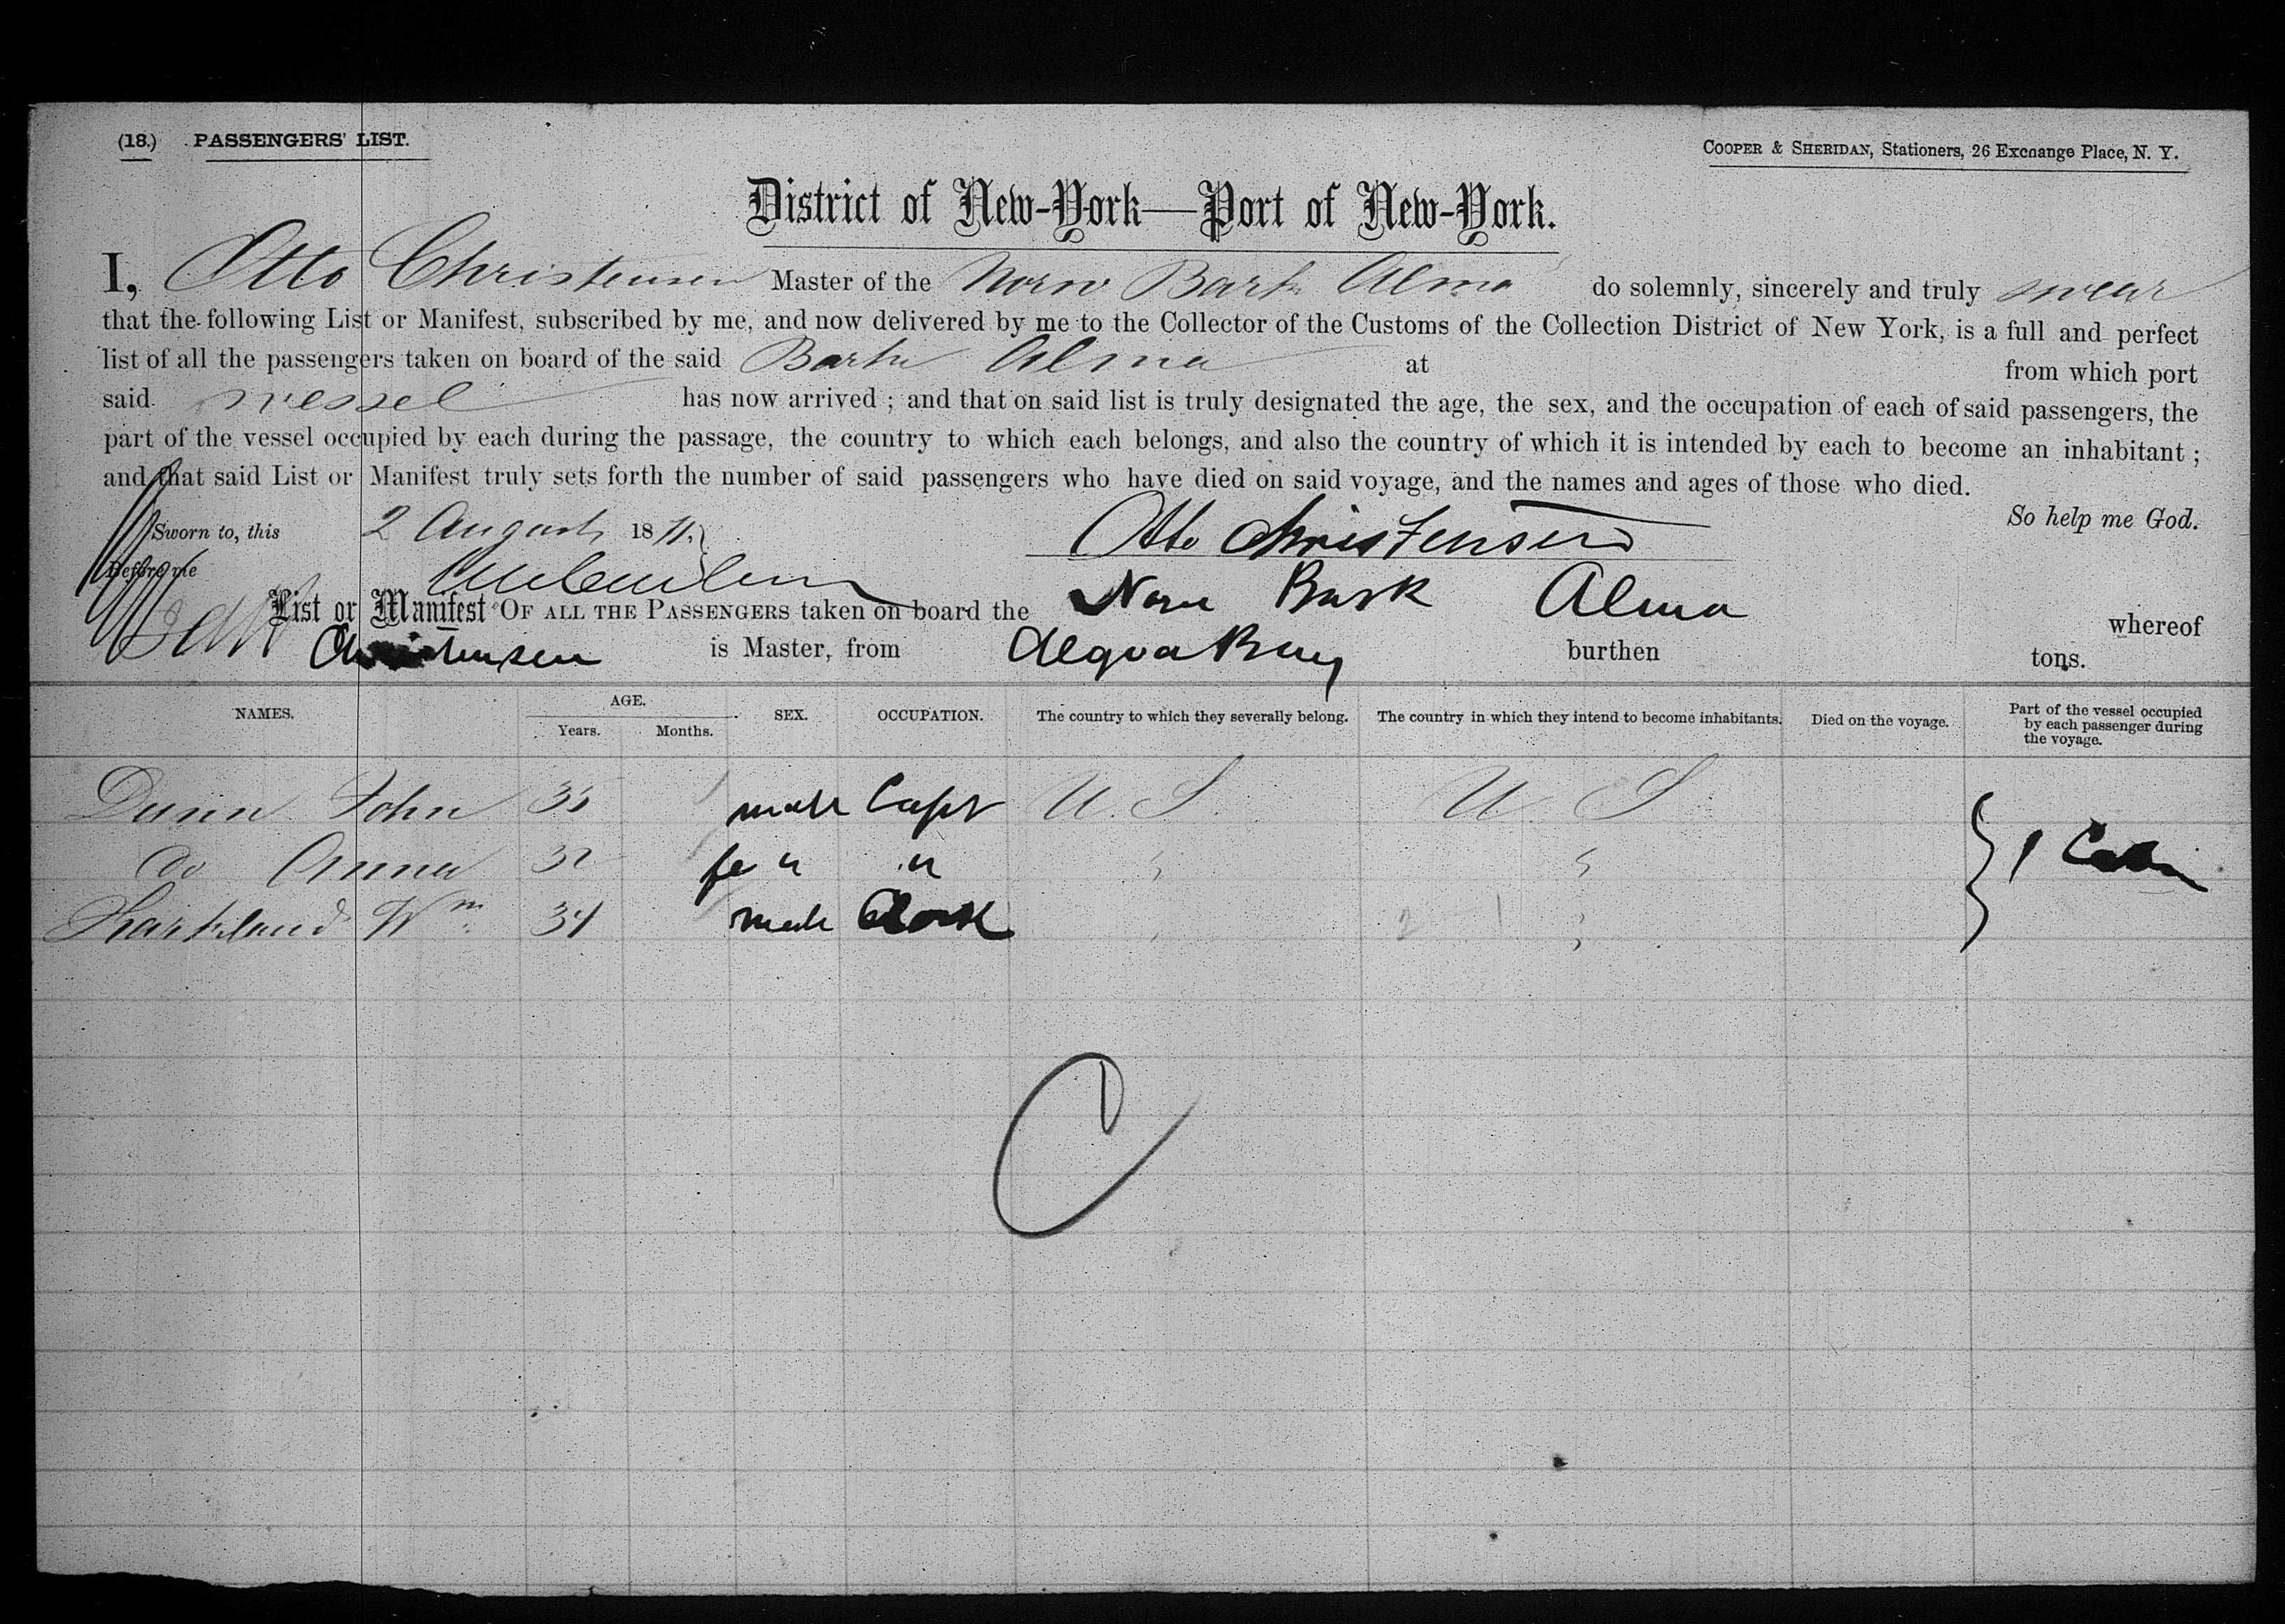 (18.) PASSENGERS' LIST. COOPER & SHERIDAN, Stationers, 26 Exchange Place, N. Y.
District of New-York—Port of New-York.
I, Otto Christensen Master of the Norw Bark Alma do solemnly, sincerely and truly swear
that the following List or Manifest, subscribed by me, and now delivered by me to the Collector of the Customs of the Collection District of New York, is a full and perfect
list of all the passengers taken on board of the said Bark Alma at from which port
said vessel has now arrived ; and that on said list is truly designated the age, the sex, and the occupation of each of said passengers, the
part of the vessel occupied by each during the passage, the country to which each belongs, and also the country of which it is intended by each to become an inhabitant ;
and that said List or Manifest truly sets forth the number of said passengers who have died on said voyage, and the names and ages of those who died.
So help me God.
Sworn to, this 2 August 18 Otto Christensen
Before me
List or Manifest OF ALL THE PASSENGERS taken on board the Norw Bark Alma whereof
Christensen is Master, from Algoa Bay burthen tons.
NAMES. AGE. SEX. OCCUPATION. The country to which they severally belong. The country in which they intend to become inhabitants. Died on the voyage. Part of the vessel occupied by each passenger during the voyage.
Years. Months.
Dunn John 35 male Capt U. S. U. S.
do Anna 32 fe " "
1 Cabin
Wm 34 male Clerk
2 1
C